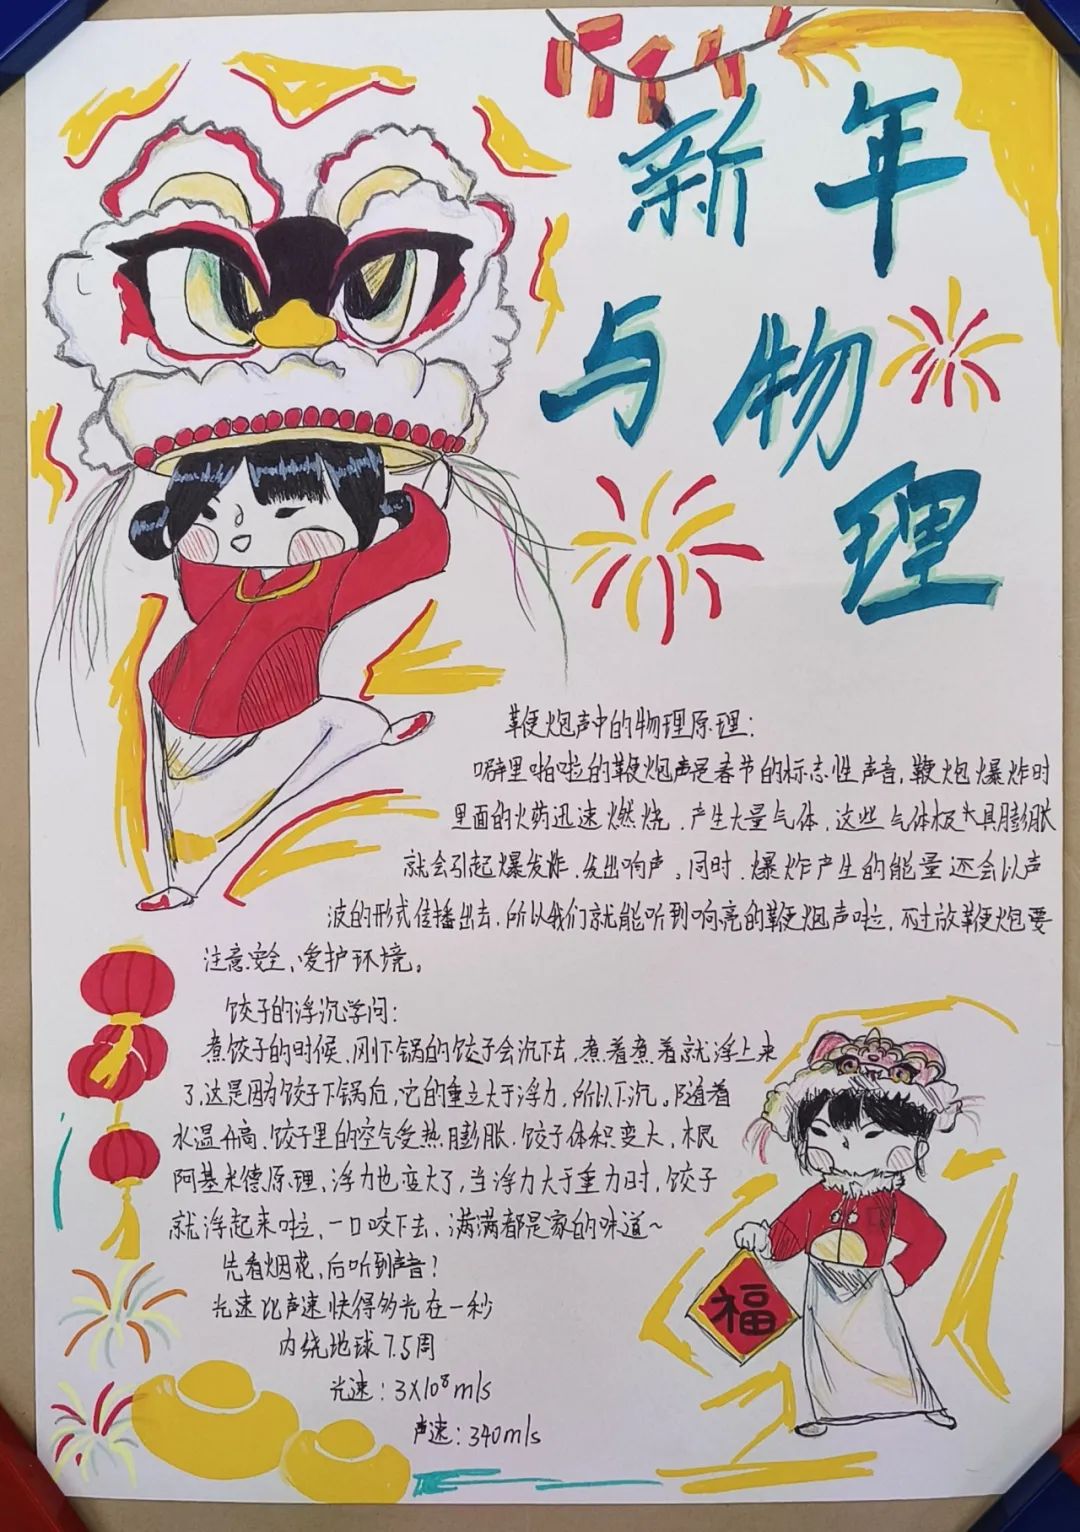 新年
与物
理
鞭炮声中的物理原理:
噼里啪啦的鞭炮声是春节的标志性声音,鞭炮爆炸时
里面的火药迅速燃烧,产生大量气体,这些气体极大具膨胀
就会引起爆发炸,发出响声。同时,爆炸产生的能量还会以声
波的形式传播出去,所以我们就能听到响亮的鞭炮声啦,不过放鞭炮要
注意安全、爱护环境。
饺子的浮沉学问:
煮饺子的时候,刚下锅的饺子会沉下去,煮着煮着就浮上来
了,这是因为饺子下锅后,它的重立大于浮力,所以下沉。随着
水温升高,饺子里的空气受热膨胀,饺子体积变大,根
阿基米德原理,浮力也变大了,当浮力大于重力时,饺子
就浮起来啦,一口咬下去,满满都是家的味道~
先看烟花,后听到声音?
光速比声速快得多光在一秒
内绕地球7.5周
光速:3X10⁸m/s
声速:340m/s
福